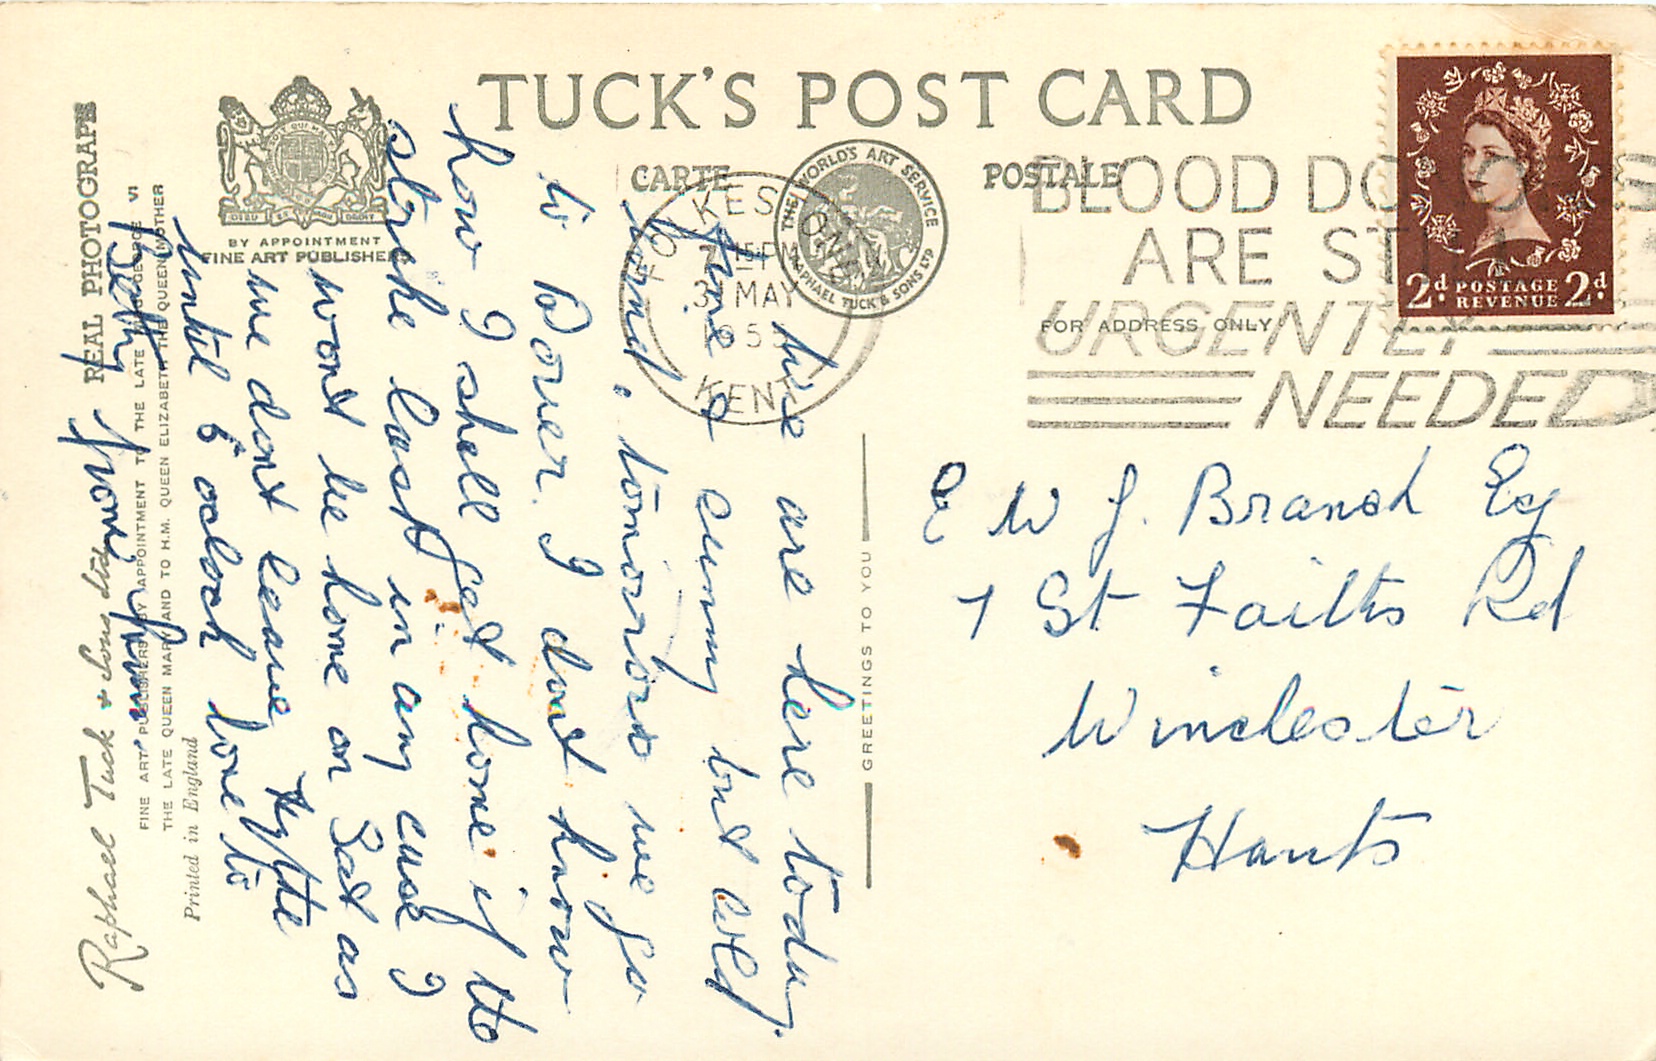 TUCK'S POST CARD
CARTE POSTALE
THE WORLD'S ART SERVICE
RAPHAEL TUCK & SONS LTD
BY APPOINTMENT
FINE ART PUBLISHERS
FOLKESTONE
7 15 PM
MAY
KENT
BLOOD DONORS
ARE STILL
URGENTLY
NEEDED
2d POSTAGE REVENUE 2d
FOR ADDRESS ONLY
We are here today.
fine & sunny but cold
wind, tomorrow we go
to Dover. I dont know
how I shall get home if the
strike last in any case I
wont be home on Sat as
we dont leave Hythe
until 6 oclock love to
Betty
E W J. Branch Esq
7 St Faiths Rd
Winchester
Hants
GREETINGS TO YOU
REAL PHOTOGRAPH
Raphael Tuck & Sons Ltd
FINE ART PUBLISHERS BY APPOINTMENT TO THE LATE KING GEORGE VI
THE LATE QUEEN MARY AND TO H.M. QUEEN ELIZABETH THE QUEEN MOTHER
Printed in England